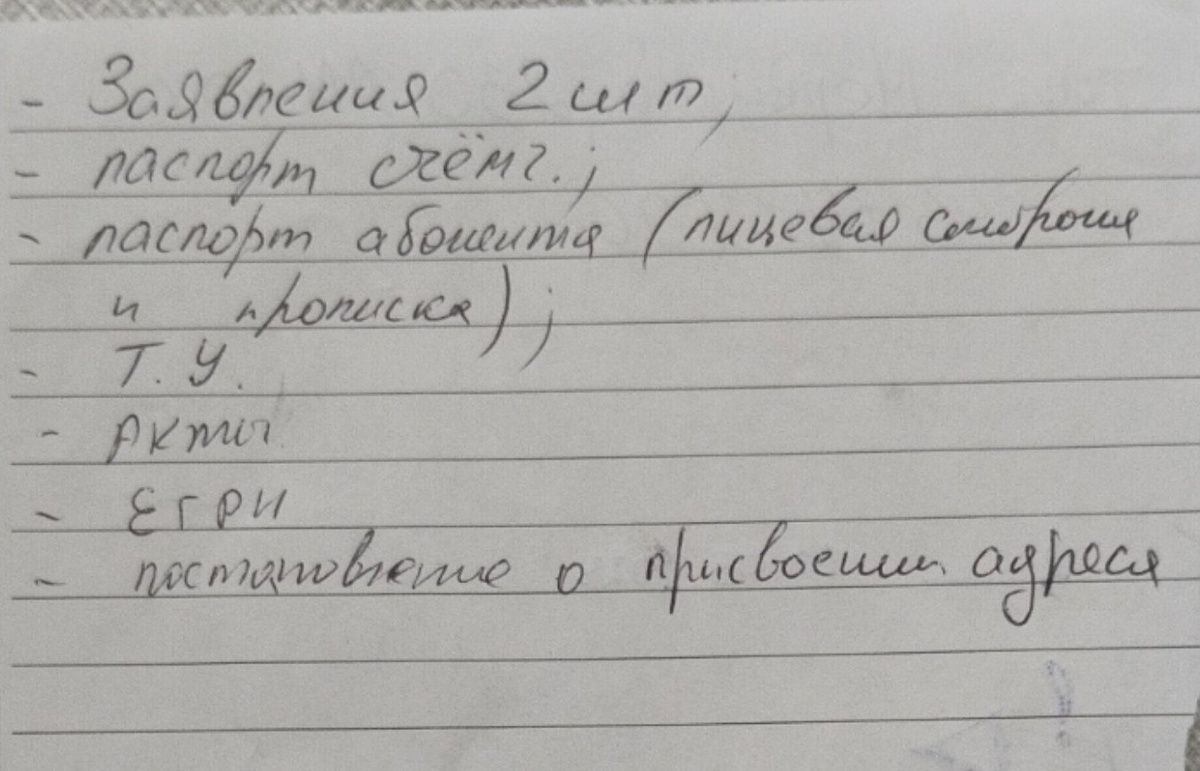 - Заявления 2 шт,
- паспорт счётч.;
- паспорт абонента (лицевая сторона
и прописка);
- Т.У.
- Акты
- ЕГРН
- постановление о присвоении адреса